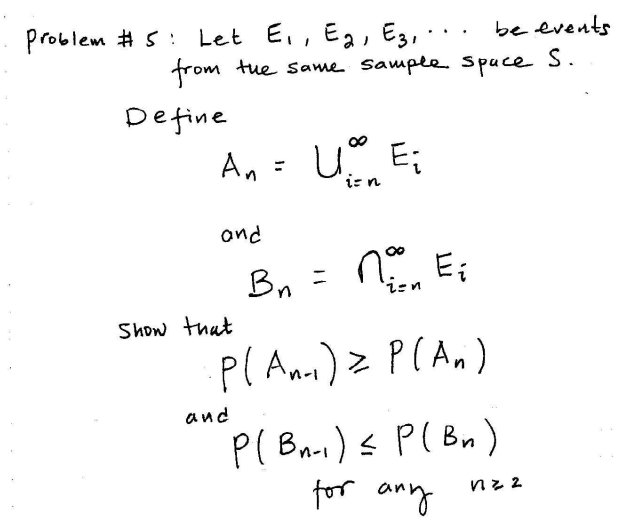 Problem # 5 : Let E₁, E₂, E₃, ... be events
from the same sample space S.
Define
Aₙ = ∪_{i=n}^{∞} E_i
and
Bₙ = ∩_{i=n}^{∞} E_i
Show that
P(Aₙ₋₁) ≥ P(Aₙ)
and
P(Bₙ₋₁) ≤ P(Bₙ)
for any n ≥ 2